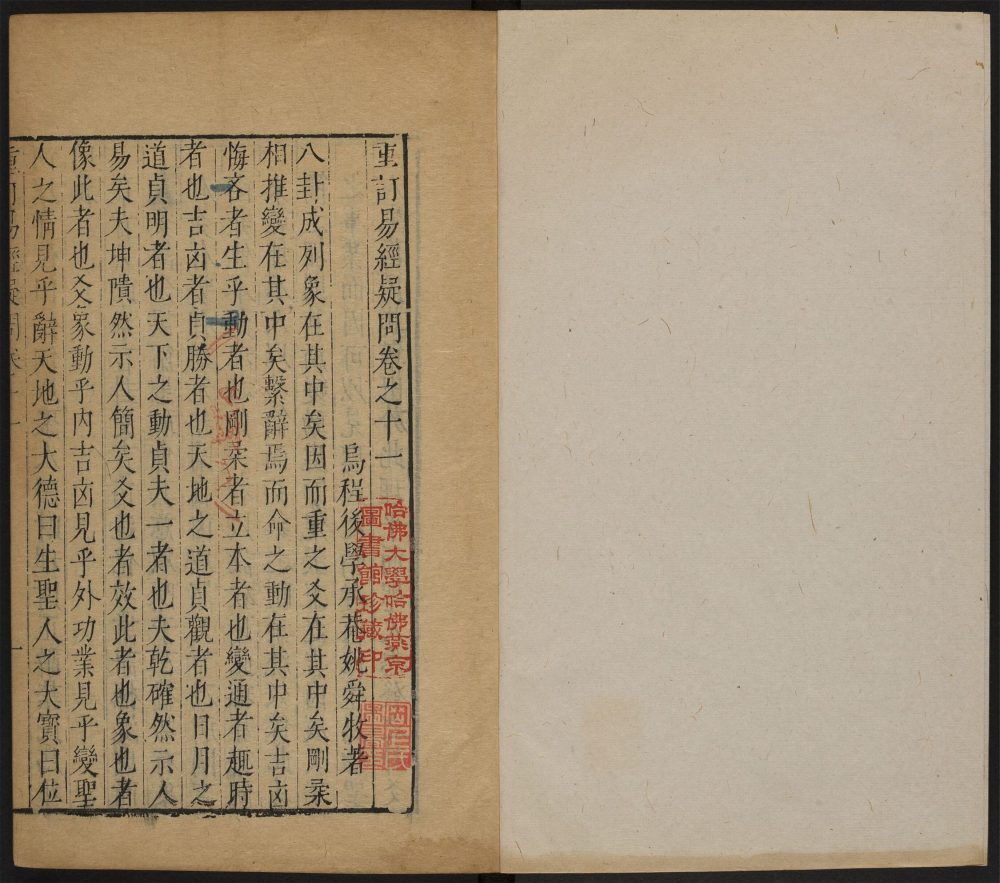 重訂易經疑問卷之十一
烏程後學承菴姚舜牧著
八卦成列象在其中矣因而重之爻在其中矣剛柔
相推變在其中矣繫辭焉而命之動在其中矣吉凶
悔吝者生乎動者也剛柔者立本者也變通者趣時
者也吉凶者貞勝者也天地之道貞觀者也日月之
道貞明者也天下之動貞夫一者也夫乾確然示人
易矣夫坤隤然示人簡矣爻也者效此者也象也者
像此者也爻象動乎內吉凶見乎外功業見乎變聖
人之情見乎辭天地之大德曰生聖人之大寶曰位
重訂易經疑問卷十一
一
哈佛大學哈佛燕京
圖書館珍藏印